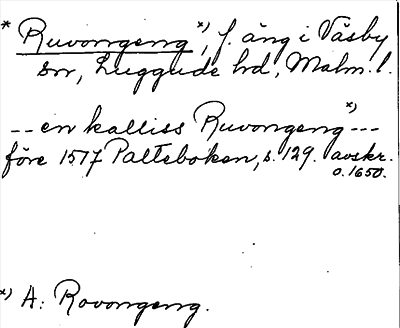 * Ruvongeng *), f. äng i Väsby
sn, Luggude hd, Malm. l.
-- en kalliss Ruvongeng *) ---
före 1517 Palteboken, s. 129. avskr.
o. 1650.
*) A: Rovongeng.